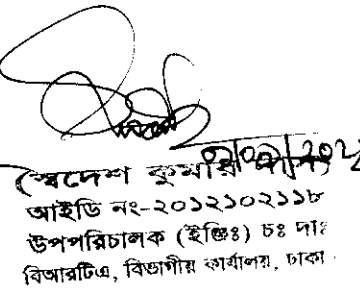 স্বদেশ কুমার
আইডি নং-২০১২১০২১১৮
উপপরিচালক (ইঞ্জিঃ) চঃ দাঃ
বিআরটিএ, বিভাগীয় কার্যালয়, ঢাকা